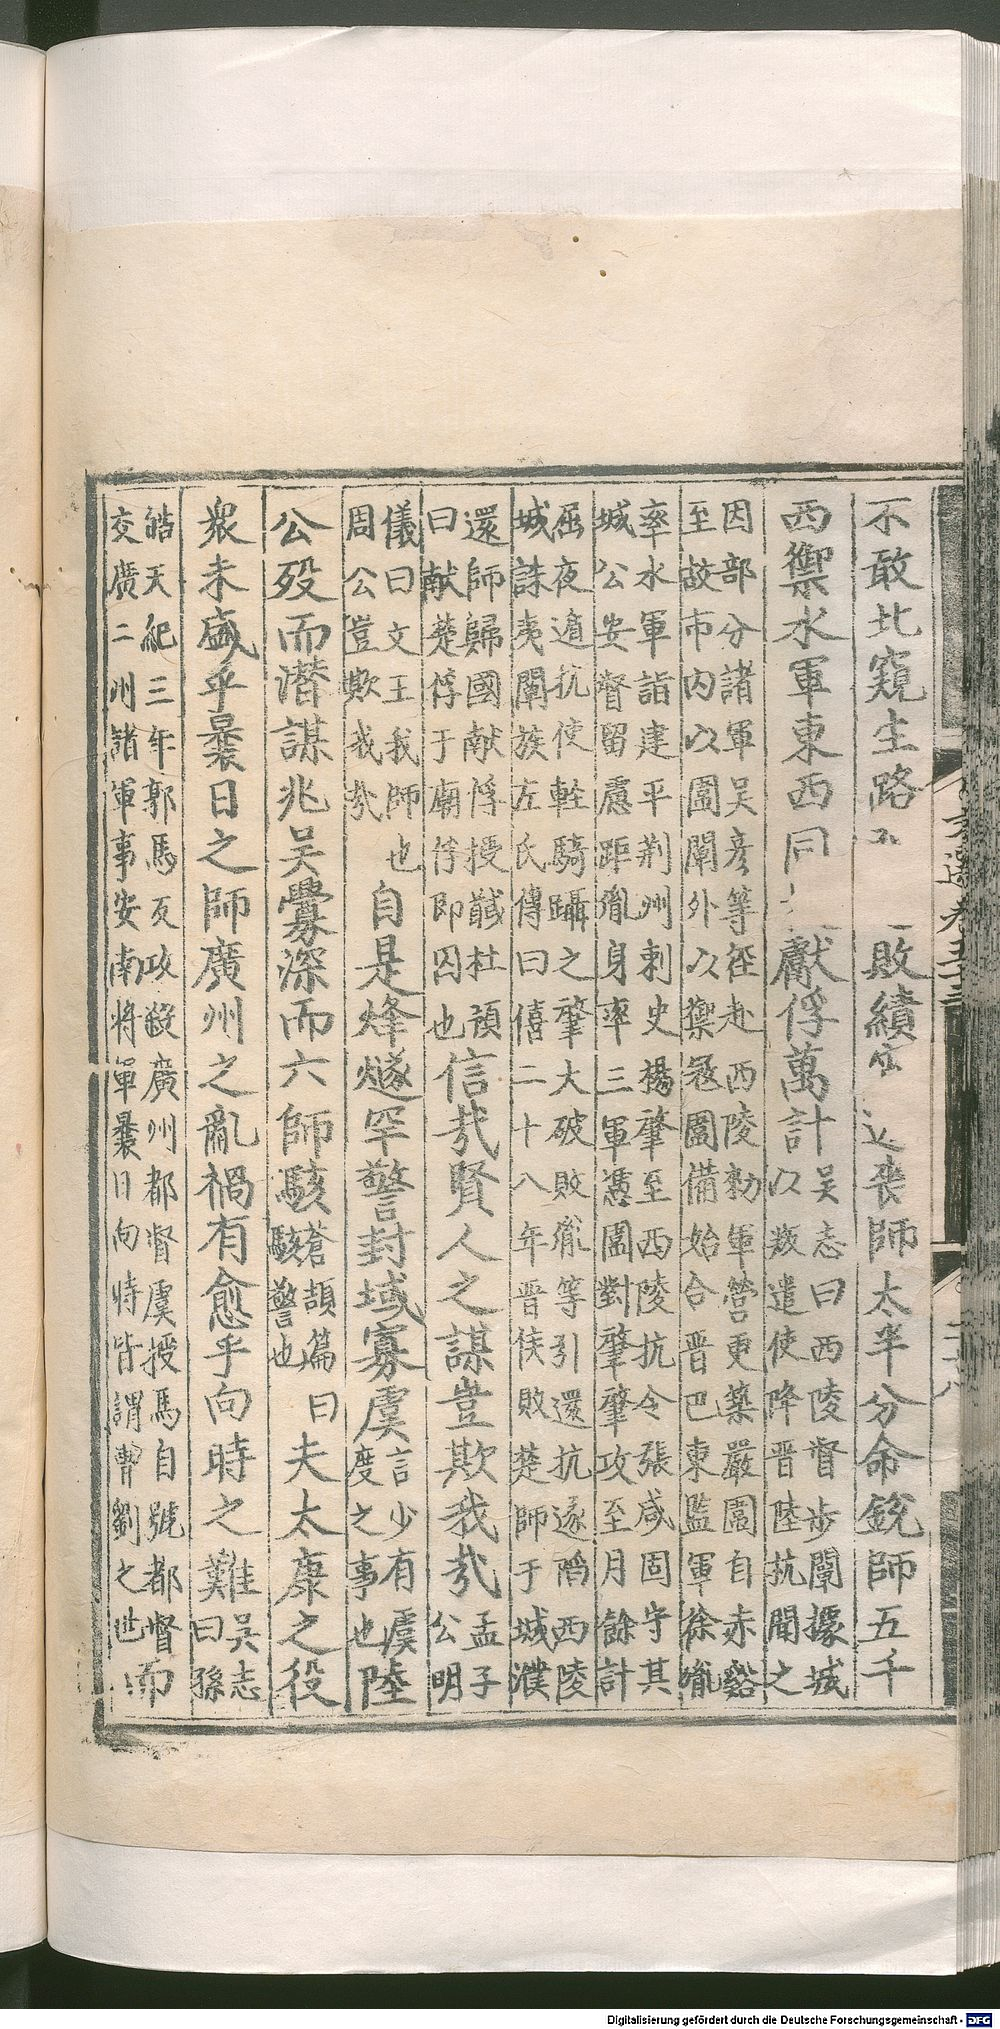 不敢北窺生路 敗績 喪師太半分命銳師五千
西禦水軍東西同 獻俘萬計吳志曰西陵督步闡據城以叛遣使降晉陸抗聞之
因部分諸軍吳彥等徑赴西陵勑軍營更築嚴圍自赤谿至故市内以圍闡外以禦寇圍備始合晉巴東監軍徐胤
率水軍詣建平荆州刺史楊肇至西陵抗令張咸固守其城公安督留慮距胤身率三軍憑圍對肇肇攻至月餘計
屈夜遁抗使輊騎躡之肇大破敗胤等引還抗遂陷西陵城誅夷闡族左氏傳曰僖二十八年晉侯敗楚師于城濮
還師歸國献俘授馘杜預曰献楚俘于廟俘即囚也信㢤賢人之謀豈欺我㢤孟子公明
儀曰文王我師也周公豈欺我㢤自是烽燧罕警封域寡虞言少有虞度之事也陸
公殁而潜謀兆吴釁深而六師駭蒼頡篇曰駭警也夫太康之役
衆未盛乎曩日之師廣州之亂禍有愈乎向時之難吴志曰孫
皓天紀三年郭馬反攻殺廣州都督虞授馬自號都督交廣二州諸軍事安南將軍曩日向時皆謂曹劉之世而
文選卷五十三
Digitalisierung gefördert durch die Deutsche Forschungsgemeinschaft - DFG